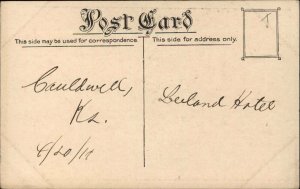 Post Card
This side may be used for correspondence.
This side for address only.
Cauldwell,
Ks.
4/20/11
Leland Hotel